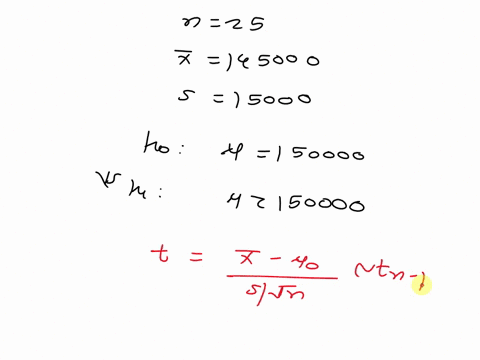 n = 25
x̄ = 145000
s = 15000
H₀: μ = 150000
Vs H₁: μ < 150000
t = (x̄ - μ₀) / (s/√n) ~ tₙ₋₁